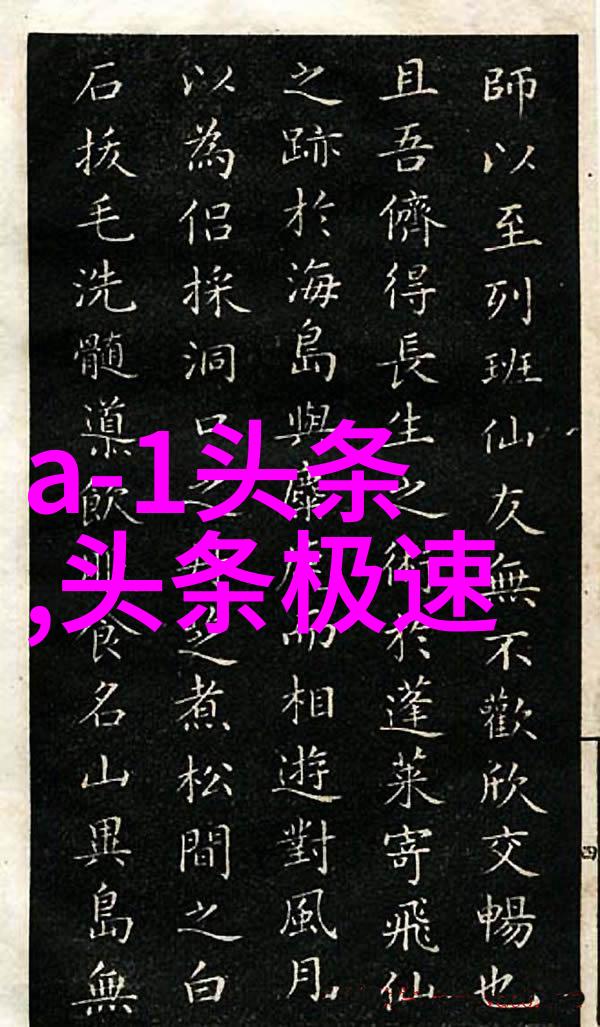 師以至列班仙友無不歡欣交暢也
且吾儕得長生之術於蓬萊寄飛仙
之跡於海島與麋鹿而相遊對風月
以為侶採洞口之芝煮松間之白
石拔毛洗髓飲食名山異島無
a-1头条
,头条极速
四